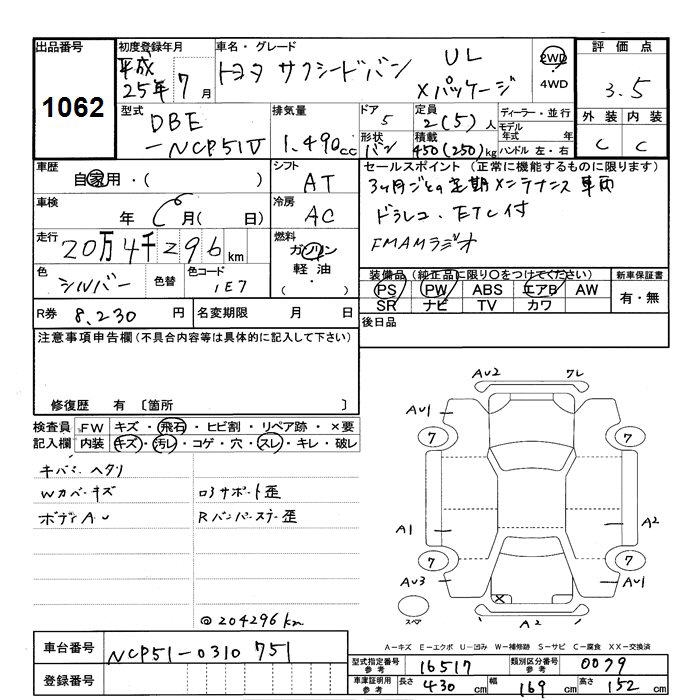 出品番号
1062
初度登録年月
平成
25年 7月
車名・グレード
トヨタ サクシードバン UL
Xパッケージ
2WD
・
4WD
評価点
3.5
外装 内装
C C
型式
DBE
-NCP51V
排気量
1.490cc
ドア
5
形状
バン
定員
2(5)人
積載
450(250)kg
ディーラー・並行
モデル
年式 年
ハンドル 左・右
車歴
自家用・( )
シフト
AT
車検
年 6月( )
冷房
AC
走行
20万4千296km
燃料
ガソリン
軽油
( ・ )
色
シルバー
色替
色コード
1E7
R券 8,230 円
名変期限 月 日
セールスポイント(正常に機能するものに限ります)
3ヶ月ごとの定期メンテナンス車両
ドラレコ、ETC付
FMAMラジオ
装備品(純正品に限り○をつけてください)
PS PW ABS エアB AW
SR ナビ TV カワ
新車保証書
有・無
後日品
注意事項申告欄(不具合内容等は具体的に記入して下さい)
修復歴 有 〔箇所 〕
検査員 FW キズ・飛石・ヒビ割・リペア跡・×要
記入欄 内装 キズ・汚レ・コゲ・穴・スレ・キレ・破レ
Wカバーキズ
ロアサポート歪
ボディAU
Rバンパーステー歪
@204296km
AU2
ワレ
AU1
7
7
A1
A2
7
7
AU3
AU1
×
スペア
A2
A-キズ E-エクボ U-凹み W-補修跡 S-サビ C-腐食 XX-交換済
車台番号 NCP51-0310751
登録番号
型式指定番号
参考
16517
類別区分番号
参考
0079
車庫証明用
参考
長さ 430cm 幅 169cm 高さ 152cm